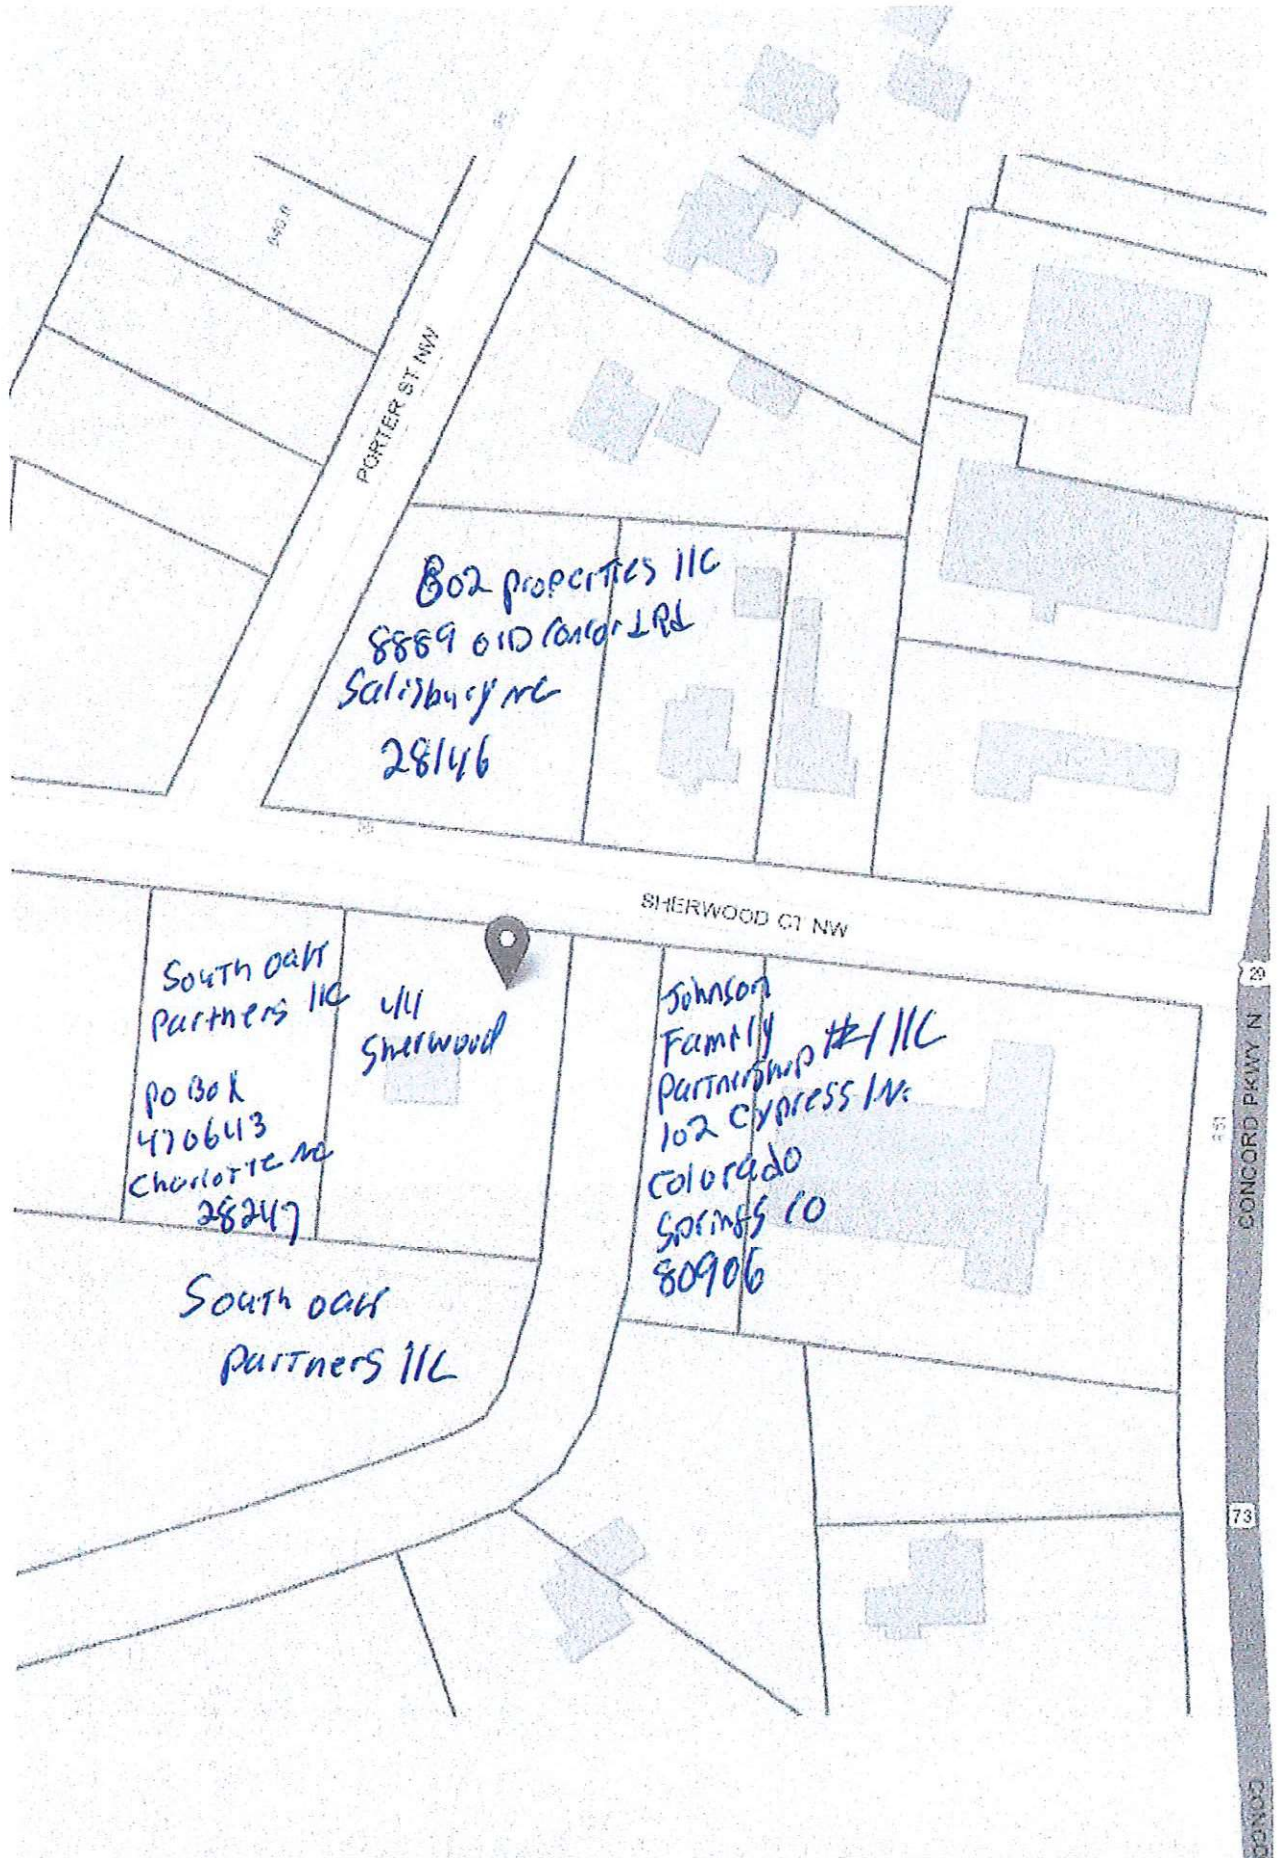 PORTER ST NW
Bo2 properties llc
8889 OlD Concord Rd
Salisbury nc
28146
SHERWOOD CT NW
South oak
Partners llc
PO Box
470643
Charlotte nc
28247
44
Sherwood
Johnson
Family
Partnership #1 llc
102 Cypress ln.
Colorado
Springs CO
80906
South oak
partners llc
29
CONCORD PKWY N
73